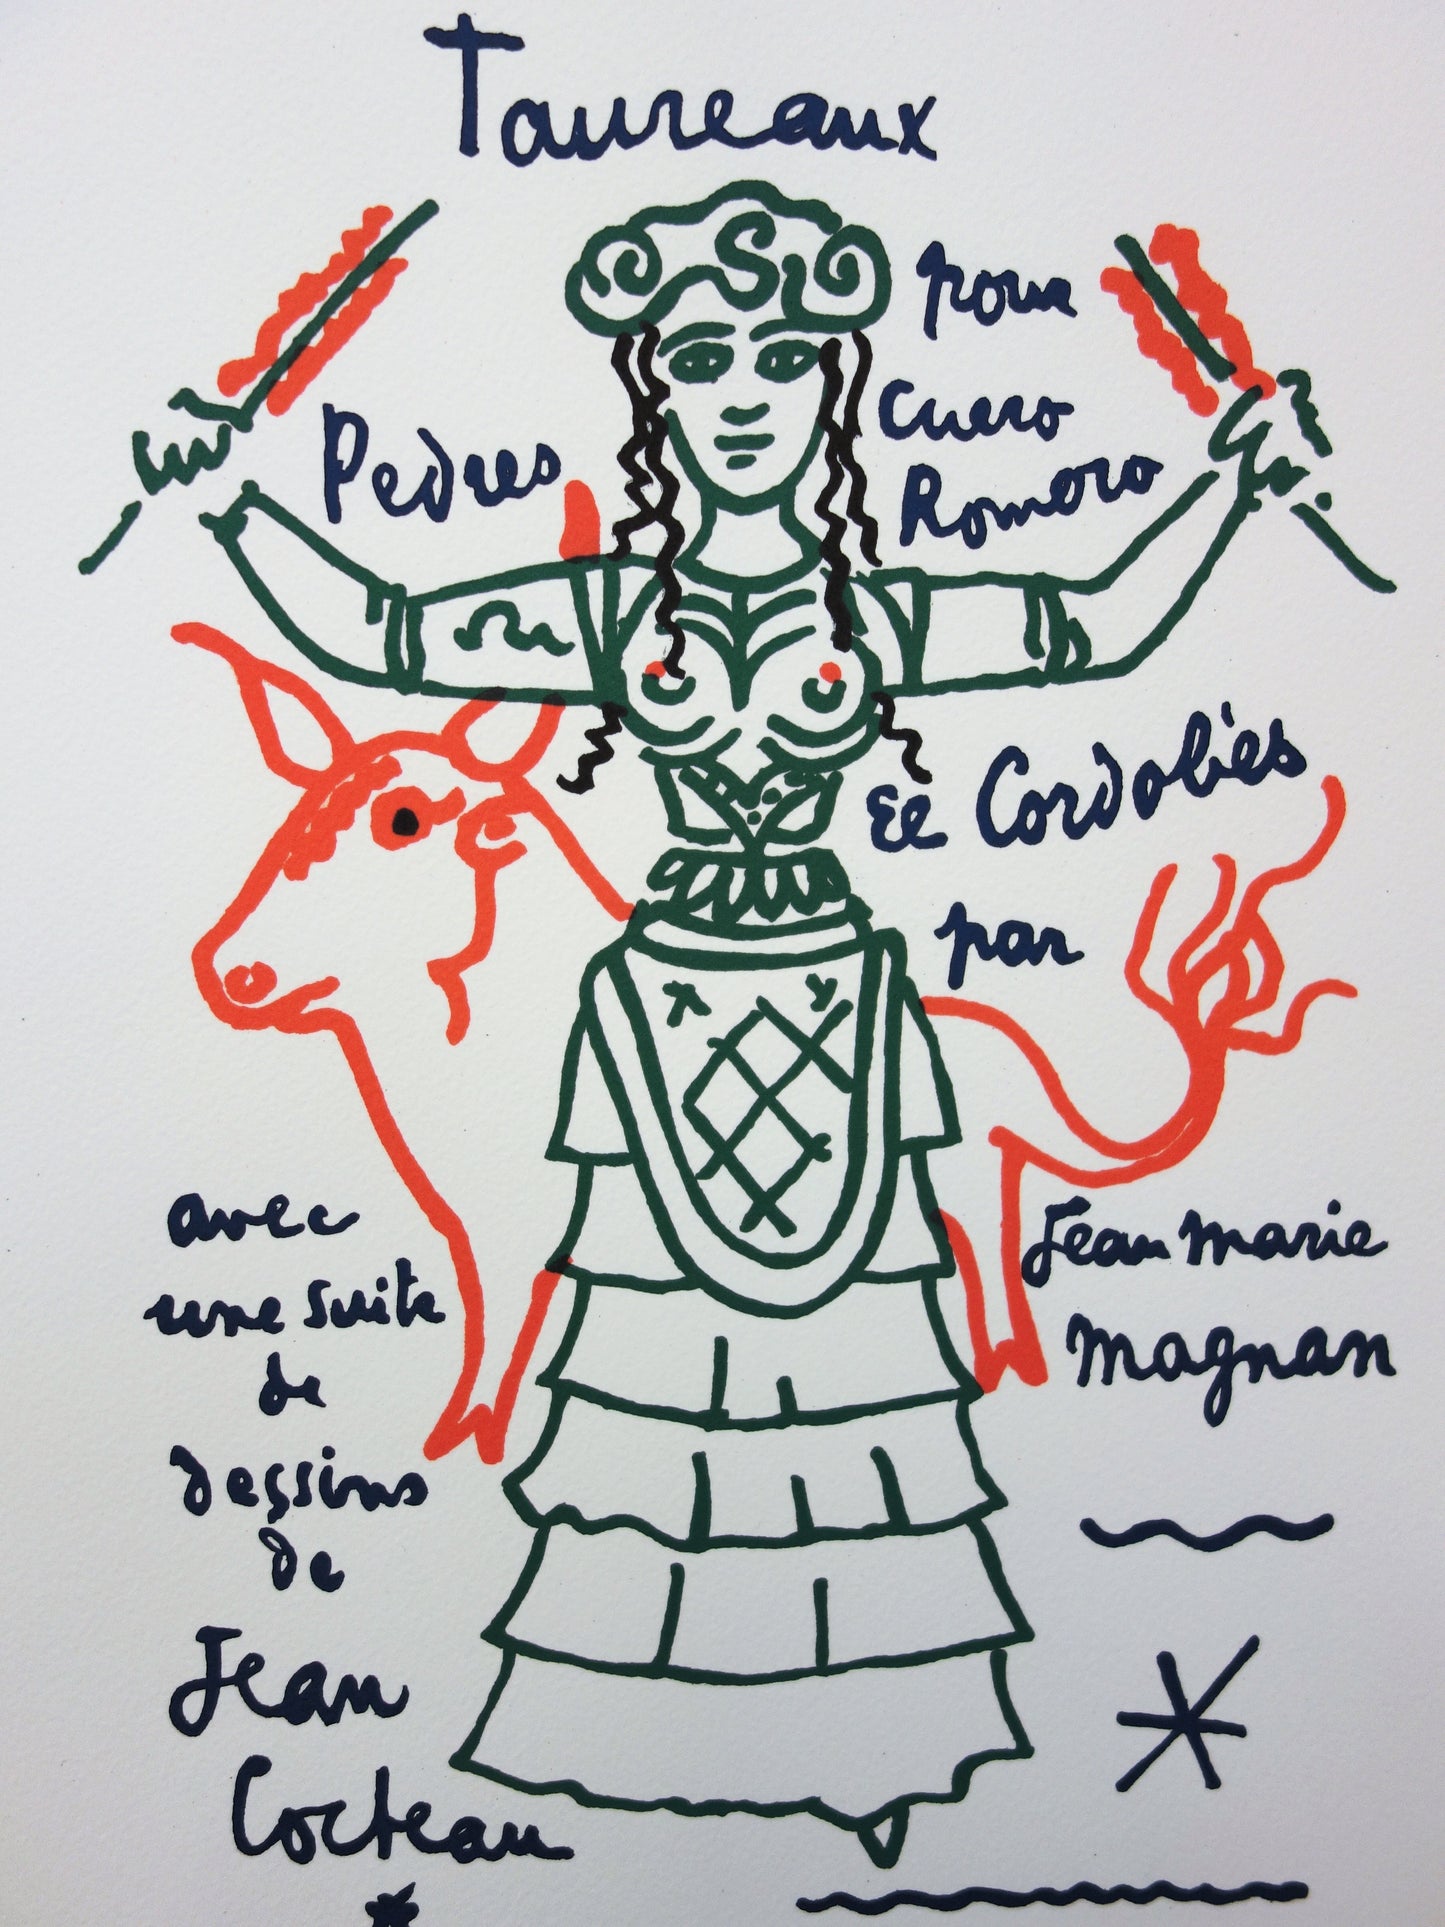 Taureaux
pour
Pedres
Curro
Romero
El Cordobès
par
Jean Marie
Magnan
avec
une suite
de
dessins
de
Jean
Cocteau